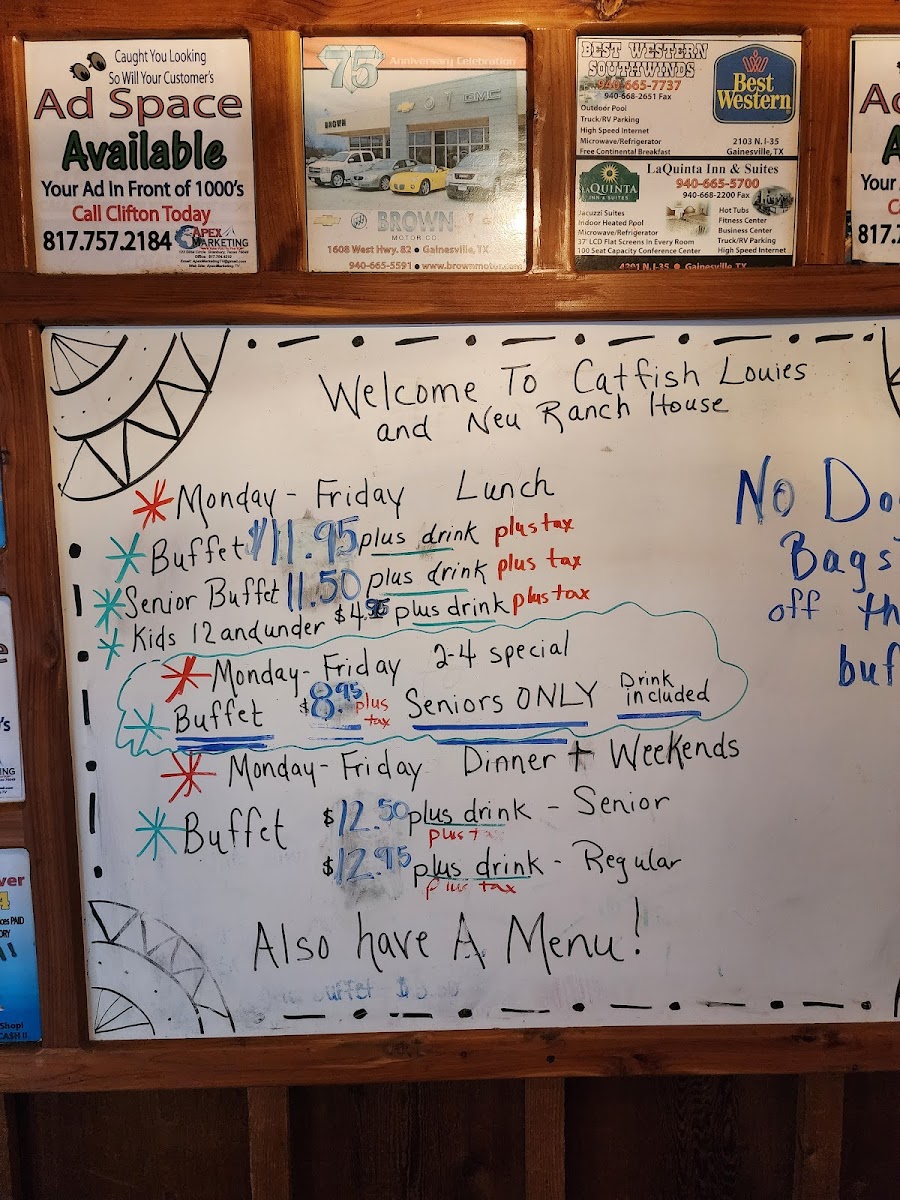 Caught You Looking
So Will Your Customer's
Ad Space
Available
Your Ad In Front of 1000's
Call Clifton Today
817.757.2184
APEX
MARKETING
75
Anniversary Celebration
BROWN
GMC
BROWN
MOTOR CO
1608 West Hwy. 82 • Gainesville, TX
940-665-5591 • www.brownmotor.com
BEST WESTERN
SOUTHWINDS
940-665-7737
940-668-2651 Fax
Outdoor Pool
Truck/RV Parking
High Speed Internet
Microwave/Refrigerator
Free Continental Breakfast
Best
Western
2103 N. I-35
Gainesville, TX
LAQUINTA
INN & SUITES
LaQuinta Inn & Suites
940-665-5700
940-668-2200 Fax
Jacuzzi Suites
Indoor Heated Pool
Microwave/Refrigerator
37" LCD Flat Screens In Every Room
100 Seat Capacity Conference Center
Hot Tubs
Fitness Center
Business Center
Truck/RV Parking
High Speed Internet
4201 N. I-35 • Gainesville, TX
Ad
A
Your
C
817.7
Welcome To Catfish Louies
and Neu Ranch House
Monday - Friday Lunch
Buffet $11.95 plus drink plus tax
Senior Buffet 11.50 plus drink plus tax
Kids 12 and under $4.95 plus drink plus tax
Monday - Friday 2-4 special
Buffet $8.95 plus tax Seniors ONLY Drink included
Monday - Friday Dinner + Weekends
Buffet $12.50 plus drink - Senior
plus ta
$12.95 plus drink - Regular
plus tax
Also have A Menu!
Buffet
No Do
Bags
off th
buf
e
's
NG
ver
4
ces PAID
ORY
Shop!
CASH II